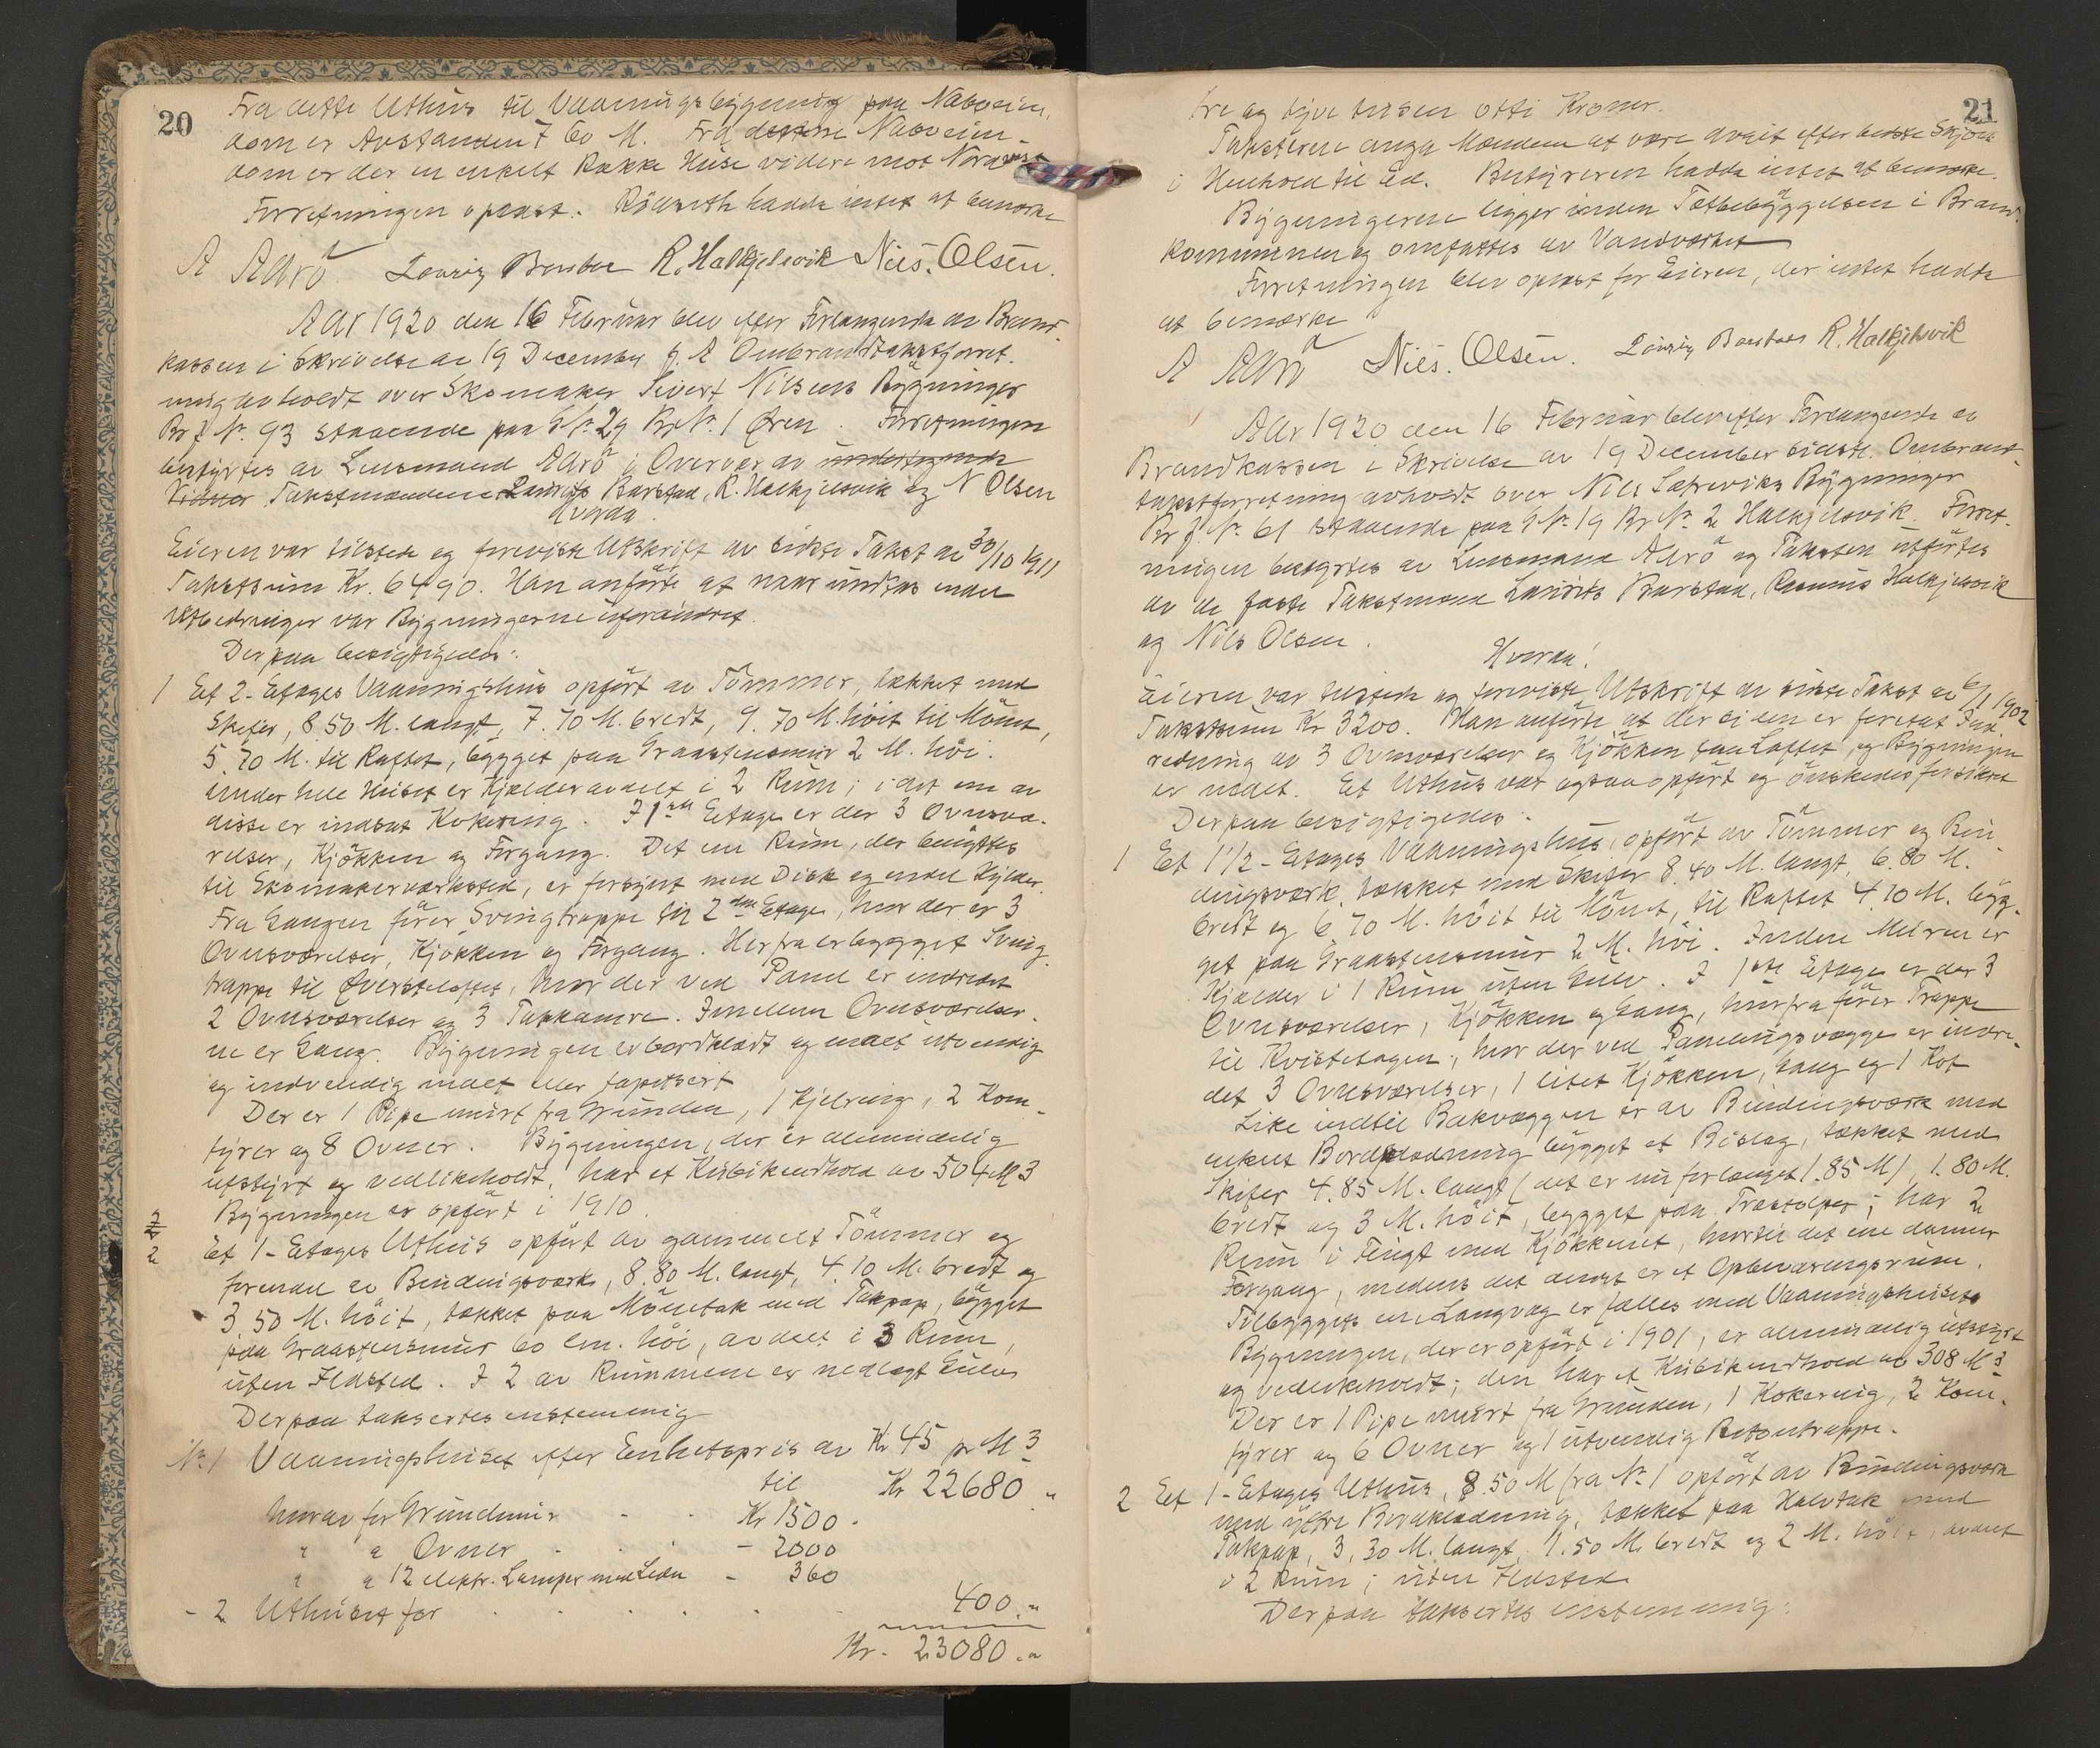 20
Fra dette Uthus til Vaaningsbygning paa Naboeien-
dom er Avstanden 7 60 M. Fra denne Naboeien-
dom er der en enkelt Række Huse videre mot Nordvest
Forretningen oplæst. Röiseth hadde intet at bemærke
A Aarö Lauritz Barstad R. Halkjelsvik Nils. Olsen.
Aar 1920 den 16 Februar blev efter Forlangende av Brand-
kassen i Skrivelse av 19 December f. A Ombrandtakstforret-
ning avholdt over Skomaker Sivert Nilsens Bygninger
Br f No. 93 staaende paa G No. 29 Br No. 1 Øren. Forretningen
bestyrtes av Lensmand Aarö i Overvær av undertegnede
Vidner Takstmændene Laurits Barstad, R. Halkjelsvik og N Olsen
Hvorda
Eieren var tilstede og foreviste Utskrift av sidste Takst av 30/10 1911
Takstsum Kr. 6490. Han anförte at naar undtas endel
Utbedringer var Bygningerne uforandret.
Derpaa besigtigedes:
1 Et 2-Etages Vaaningshus opfört av Tömmer, tækket med
Skifer, 8.50 M. langt, 7.70 M. bredt, 9.70 M. höit til Mönet,
5.70 M. til Raftet, bygget paa Graastensmur 2 M. höi.
Under hele Huset er Kjælder avdelt i 2 Rum; i det ene av
disse er indsat Kokering. I 1ste Etage er der 3 Ovnsvæ-
relser, Kjökken og Forgang. Det ene Rum, der benyttes
til Skomakerværksted, er forsynt med Disk og endel Hylder.
Fra Gangen förer Svingtrappe til 2den Etage, hvor der er 3
Ovnsværelser, Kjökken og Forgang. Herfra er bygget Sving-
trappe til Øversteloftet, hvor der ved Panel er indredet
2 Ovnsværelser og 3 Takkamre. Imellem Ovnsværelser-
ne er Gang. Bygningen er bordklædt og malt utvendig
og indvendig malet eller tapetsert
Der er 1 Pipe murt fra Grunden, 1 Kjelring, 2 Kom-
fyrer og 8 Ovner. Bygningen, der er almindelig
utstyrt og vedlikeholdt, har et Kubikindhold av 504 M3
Bygningen er opfört i 1910.
2 Et 1-Etages Uthus opfört av gammelt Tömmer og
forendel av Bindingsværk, 8.80 M. langt, 4.10 M. bredt og
3 50 M. höit, tækket paa Mönetak med Takpap, bygget
paa Graastensmur 60 Cm. höi, avdelt i 3 Rum,
uten Ildsted. I 2 av Rummene er nedlagt Gulv
Derpaa taksertes enstemmig
No. 1 Vaaningshuset efter Enhetspris av Kr 45 pr M3
til Kr 22680 "
hvorav for Grundmur - - Kr 1500 -
" " Ovner - - - 2000
" " 12 elektr. Lamper med Ledn - 360
- 2 Uthuset for - - - - - 400. "
Kr. 23080. "
21
tre og tyve tusen otti Kroner.
Taksterne angav Mændene at være avgit efter bedste Skjön
i Henhold til Ed. Bestyreren hadde intet at bemærke.
Bygningerne ligger inden Tætbebyggelsen i Brand-
kommunen og omfattes av Vandværket
Forretningen blev oplæst for Eieren, der intet hadde
at bemærke
A Aarö Nils. Olsen. Lauritz Barstad R. Halkjelsvik
Aar 1920 den 16 Februar blev efter Forlangende av
Brandkassen i Skrivelse av 19 December sidstl. Ombrand-
takstforretning avholdt over Nils Sætreviks Bygninger
Br f No. 61 staaende paa G No. 19 Br No. 2 Halkjelsvik. Forret-
ningen bestyrtes av Lensmand Aarö og Taksten utförtes
av de faste Takstmænd Laurits Barstad, Rasmus Halkjelsvik
og Nils Olsen.
Hvorda!
Eieren var tilstede og foreviste Utskrift av sidste Takst av 6/1 1902
Takstsum Kr 3200. Han anförte at der siden er foretat Ind-
redning av 3 Ovnsværelser og Kjökken paa Loftet, og Bygningen
er malet. Et Uthus var ogsaa opfört og önskedes forsikret
Derpaa besigtigedes:
1 Et 1 1/2-Etages Vaaningshus, opfört av Tömmer og Bin-
dingsværk, tækket med Skifer 8.40 M. langt, 6.80 M.
bredt og 6 70 M. höit til Mönet, til Raftet 4.10 M. byg-
get paa Graastensmur 2 M. höi. Inden Muren er
Kjælder i 1 Rum uten Gulv. I 1ste Etage er der 3
Ovnsværelser, Kjökken og Gang, hvorfra förer Trappe
til Kvistetagen, hvor der ved Panelingsvægge er indre-
det 3 Ovnsværelser, 1 litet Kjökken, Gang og 1 Kot
Like indtil Bakvæggen er av Bindingsværk med
enkelt Bordklædning bygget et Bislag, tækket med
Skifer 4.85 M. langt (det er nu forlænget 1.85 M), 1.80 M.
bredt og 3 M. höit, bygget paa Træstolper; har 2
Rum i Flugt med Kjökkenet, hvortil det ene danner
Forgang, medens det andet er et Opbevaringsrum.
Tilbyggets ene Langvæg er fælles med Vaaningshusets
Bygningen, der er opfört i 1901, er almindelig utstyrt
og vedlikeholdt; den har et Kubikindhold av 308 M3
Der er 1 Pipe murt fra Grunden, 1 Kokering, 2 Kom-
fyrer og 6 Ovner og 1 utvendig Betontrappe.
2 Et 1-Etages Uthus, 8.50 M fra No. 1 opfört av Bindingsværk
med ytre Bordklædning, tækket paa Halvtak med
Takpap, 3.30 M. langt, 1.50 M. bredt og 2 M. höit, avdelt
i 2 Rum; uten Ildsted
Derpaa taksertes enstemmig: